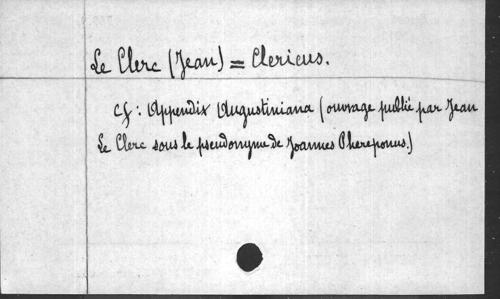 Le Clerc (Jean) = Clericus.
cf : Appendix Augustiniana (ouvrage publié par Jean
Le Clerc sous le pseudonyme de Joannes Phereponus.)